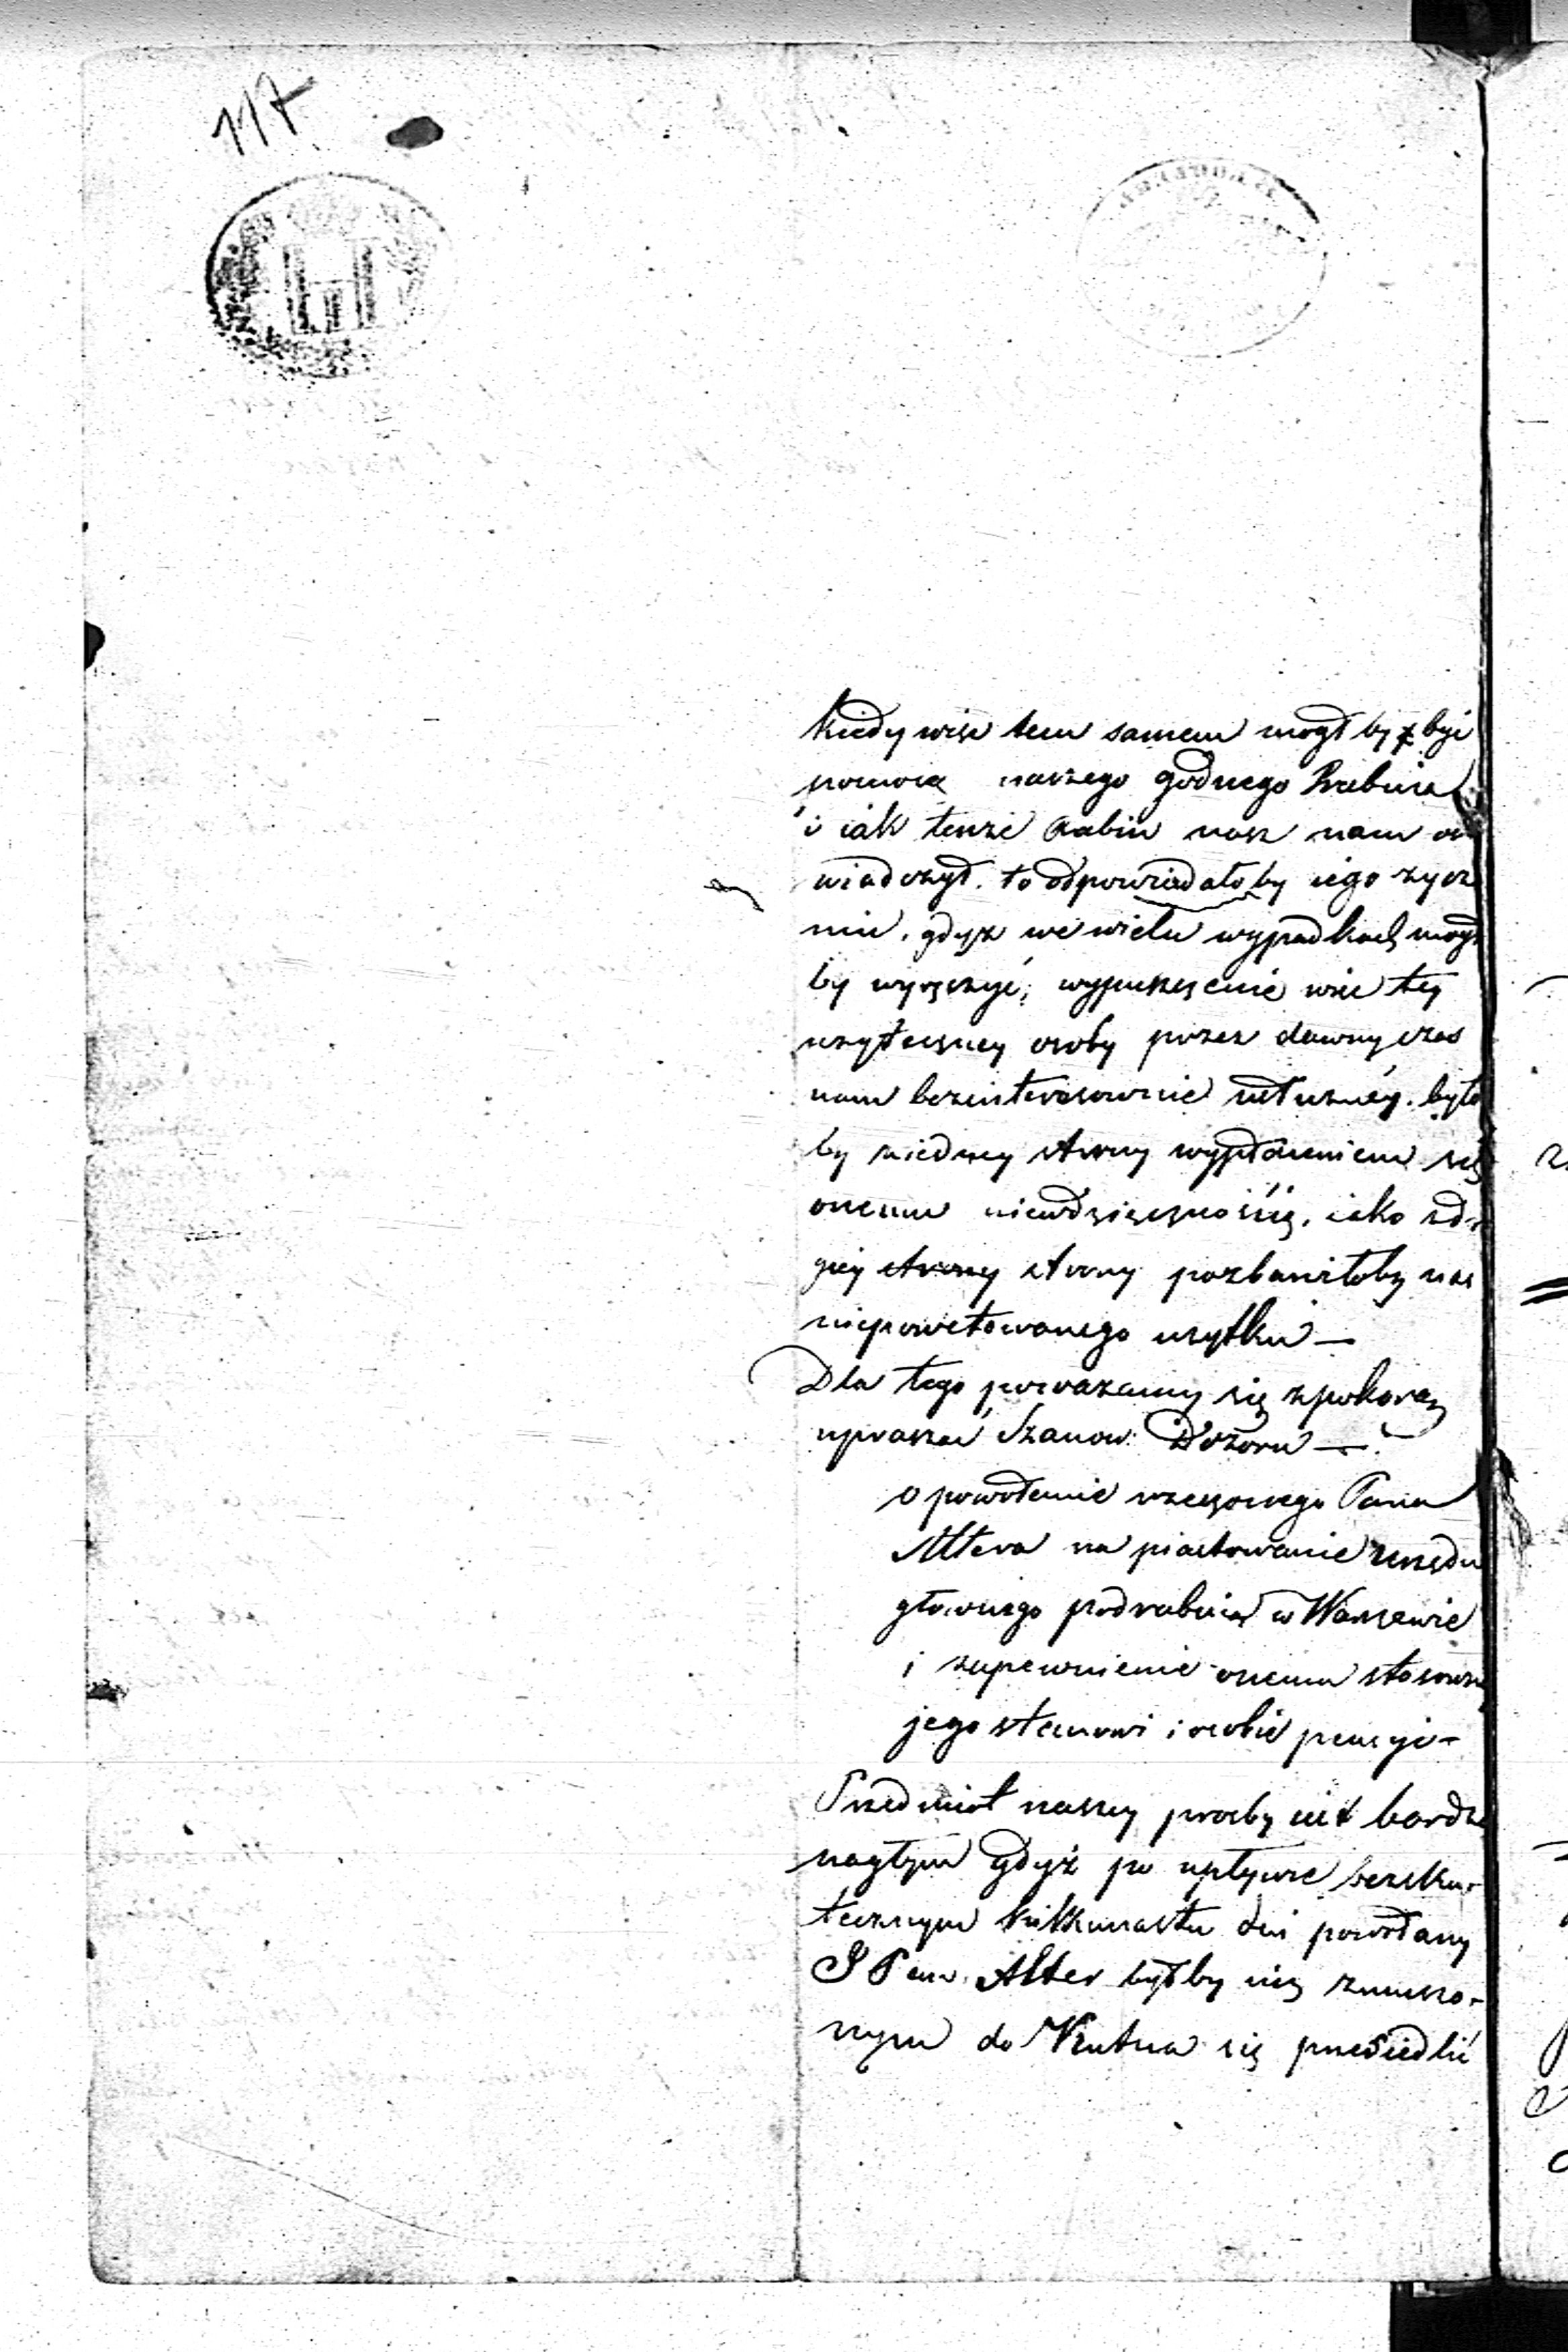 117
Kiedy więc tem samem mogł by być
pomocą naszego godnego Rabina
i iak tenże Rabin nasz nam oś
wiadczył. to odpowiadałoby iego życze
niu, gdyż we wielu wypadkach mogł
by wyręczyć; wypuszczenie więc tey
użyteczney osoby przez dawny czas
nam bezinteresownie służney. było
by ziedney strony wypłaceniem się
onemu niewdzięcznością, iako zdr
giey strony strony pozbawiłoby nas
niepowetowanego użytku —
Dla tego poważamy się zpokorą
upraszać Szanow: Dozoru —
o powołanie rzeczonego Pana
Altera na piastowanie Urzędu
głownego podrabina w Warszawie
i zapewnienie onemu stosowną
jego stanowi i osobie pensyi -
Przedmiot naszey prośby iest bardzo
nagłym gdyż po upływie bezsku-
tecznym kilkunastu dni powołany
Pan Alter byłby się zmuszo-
nym do Kutna się przesiedlić